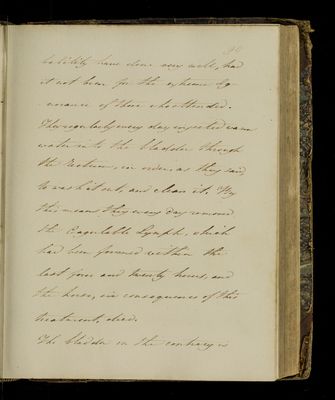 bability have done very well, had
it not been for the extreme Ig-
norance of those who attended.
They regularly every day injected warm
water into the bladder through
the Rectum, in order, as they said,
to wash it out, and clean it. By
this means they every day removed
the Coagulable Lymph, which
had been formed within the
last four and twenty hours, and
the horse, in consequence of this
treatment, died.
The bladder on the contrary is